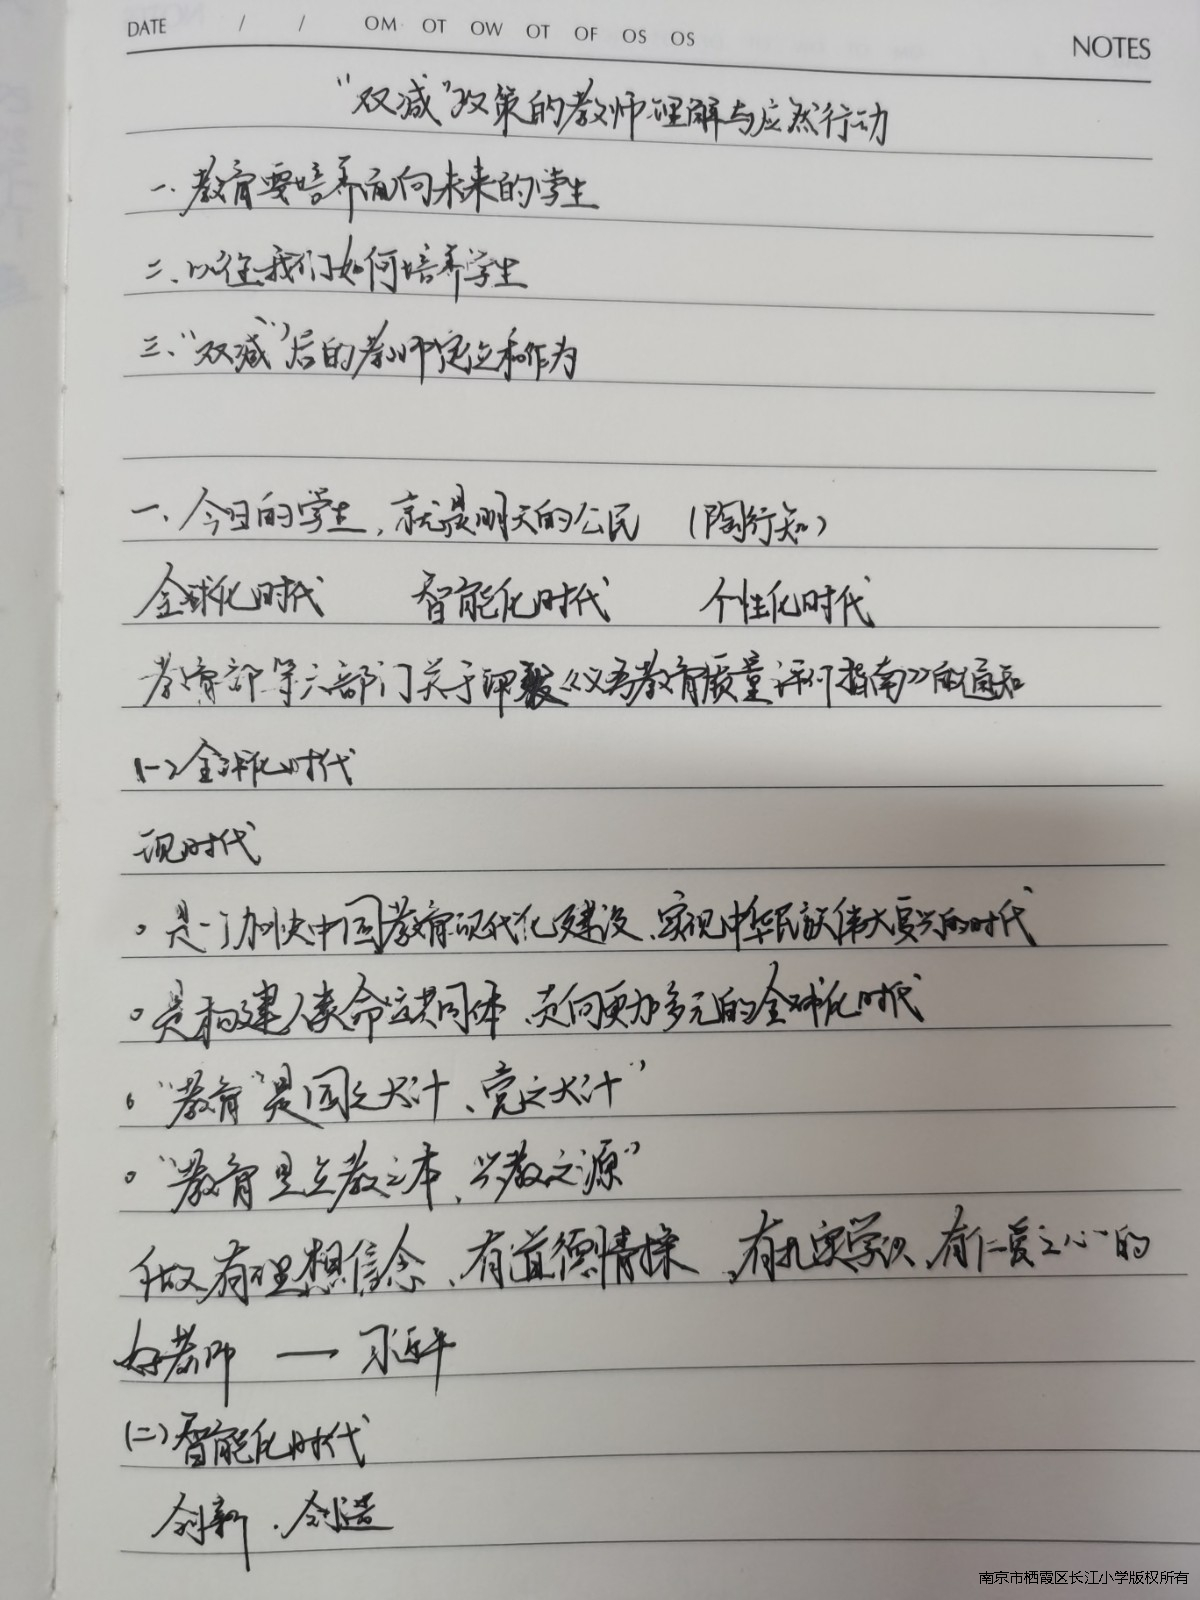 DATE / / OM OT OW OT OF OS OS
NOTES
“双减”政策的教师理解与应然行动
一、教育要培养面向未来的学生
二、以往我们如何培养学生
三、“双减”后的教师定位和作为
一、今日的学生，就是明天的公民 （陶行知）
全球化时代 智能化时代 个性化时代
教育部等六部门关于印发《义务教育质量评价指南》的通知
(一)全球化时代
现时代
。是一个加快中国教育现代化建设、实现中华民族伟大复兴的时代
。是构建人类命运共同体、走向更加多元的全球化时代
。“教育”是国之大计、党之大计”
。“教育是立教之本、兴教之源”
做有理想信念、有道德情操、有扎实学识、有仁爱之心”的
好老师 — 习近平
(二)智能化时代
创新、创造
南京市栖霞区长江小学版权所有